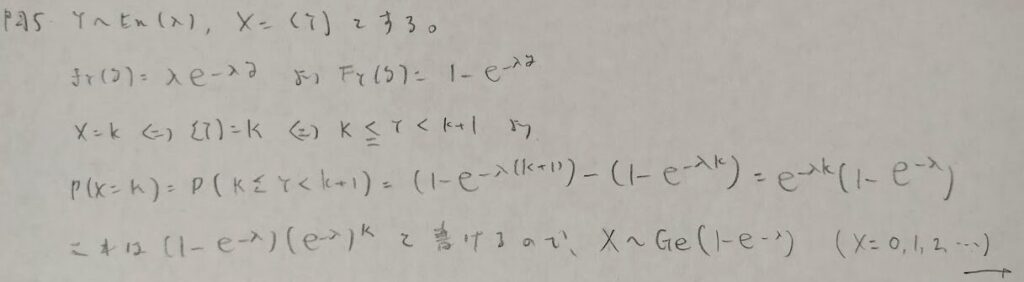 P45 Y~En(λ), X=[Y] とする。
fY(y)=λe^{-λy} より FY(y)=1-e^{-λy}
X=k ⇔ [Y]=k ⇔ k≦Y<k+1 より
P(X=k)=P(k≦Y<k+1)=(1-e^{-λ(k+1)})-(1-e^{-λk})=e^{-λk}(1-e^{-λ})
これは (1-e^{-λ})(e^{-λ})^k と書けるので、X~Ge(1-e^{-λ}) (X=0,1,2,…)